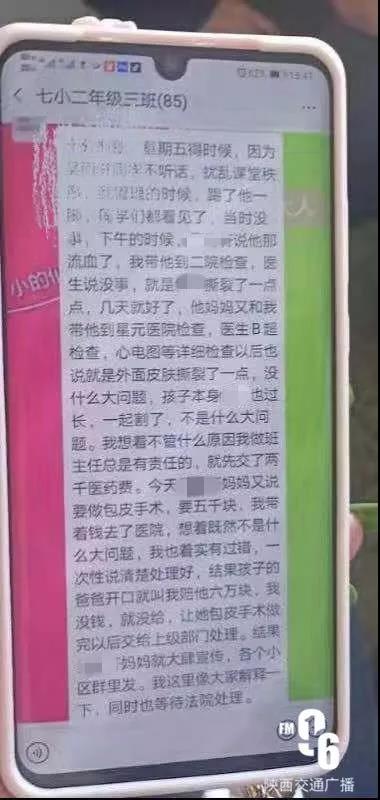 15:41
七小二年级三班(85)
星期五得时候，因为
不听话，扰乱课堂秩
的时候，踢了他一
学们都看见了，当时没
事，下午的时候， 说他那
流血了，我带他到二院检查，医
生说没事，就是 撕裂了一点
点，几天就好了，他妈妈又和我
带他到星元医院检查，医生B超
检查，心电图等详细检查以后也
说就是外面皮肤撕裂了一点，没
什么大问题，孩子本身 也过
长，一起割了，不是什么大问
题。我想着不管什么原因我做班
主任总是有责任的，就先交了两
千医药费。今天 妈妈又说
要做包皮手术，要五千块，我带
着钱去了医院，想着既然不是什
么大问题，我也着实有过错，一
次性说清楚处理好，结果孩子的
爸爸开口就叫我赔他六万块，我
没钱，就没给，让她包皮手术做
完以后交给上级部门处理。结果
妈妈就大肆宣传，各个小
区群里发。我这里像大家解释一
下，同时也等待法院处理。
FM
96
陕西交通广播